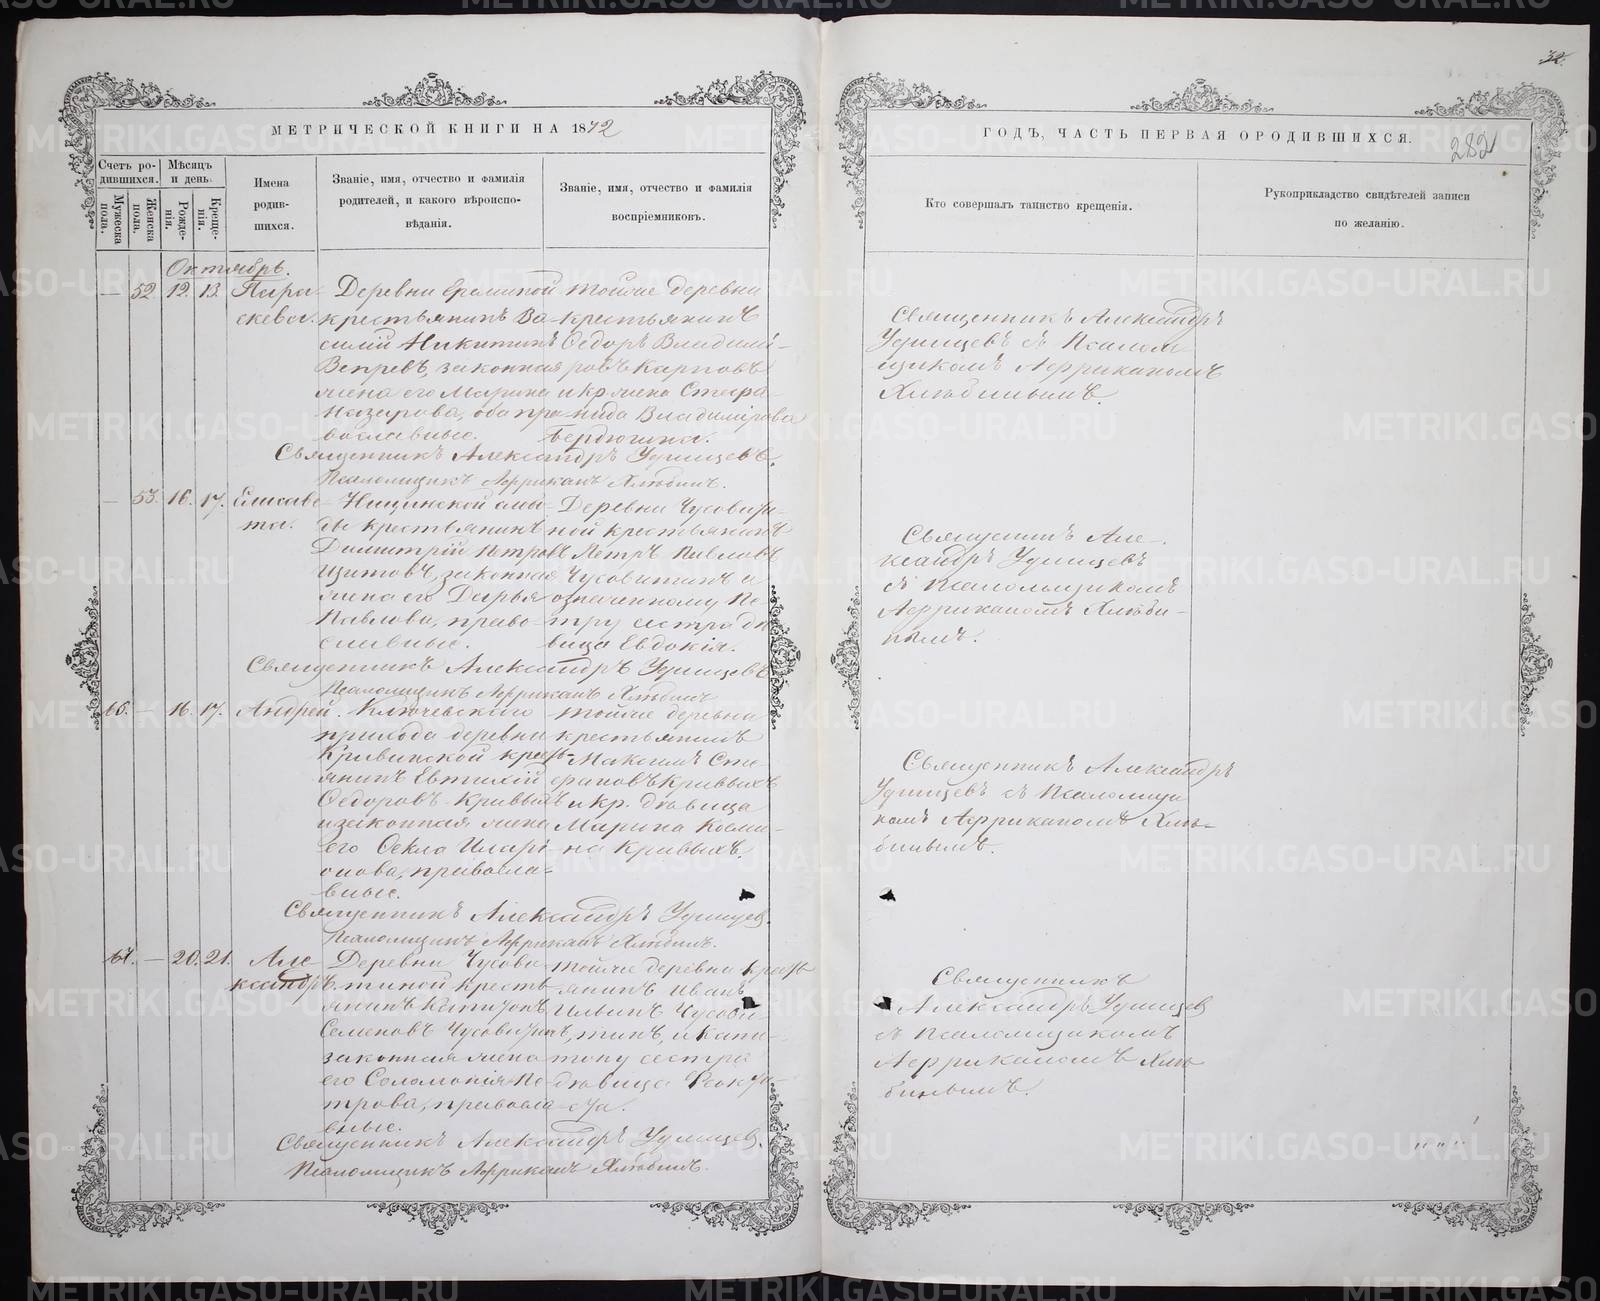 МЕТРИЧЕСКОЙ КНИГИ НА 1872
ГОДЪ, ЧАСТЬ ПЕРВАЯ О РОДИВШИХСЯ.
32
282
Счетъ ро-
дившихся.
Мѣсяцъ
и день.
Мужеска
пола.
Женска
пола.
Рожде-
нія.
Креще-
нія.
Имена
родив-
шихся.
Званіе, имя, отчество и фамилія
родителей, и какого вѣроиспо-
вѣданія.
Званіе, имя, отчество и фамилія
воспріемниковъ.
Кто совершалъ таинство крещенія.
Рукоприкладство свидѣтелей записи
по желанію.
Октябрь.
— 52. 12. 13. Пара-
скева.
Деревни Ереминой
крестьянинъ Ва-
силій Никитинъ
Вепревъ, законная
жена его Марина
Назарова, оба пра-
вославные.
Тойже деревни
крестьянинъ
Ѳедоръ Владимі-
ровъ Карповъ
и кр. жена Стефа-
нида Владимірова
Бердюгина.
Священникъ Александръ
Удинцевъ съ Псалом-
щикомъ Африканомъ
Хлѣбинымъ.
Священникъ Александръ Удинцевъ.
Псаломщикъ Африканъ Хлѣбинъ.
— 53. 16. 17. Елисаве-
та.
Ницинской слобо-
ды крестьянинъ
Димитрій Петровъ
Щитовъ, законная
жена его Дарья
Павлова, право-
славные.
Деревни Чусовити-
ной крестьянинъ
Петръ Павловъ
Чусовитинъ и
означенному Пе-
тру сестра дѣ-
вица Евдокія.
Священникъ Але-
ксандръ Удинцевъ
съ Псаломщикомъ
Африканомъ Хлѣби-
нымъ.
Священникъ Александръ Удинцевъ
Псаломщикъ Африканъ Хлѣбинъ
66. — 16. 17. Андрей.
Ключевскаго
прихода деревни
Кривинской крест-
янинъ Евтихій
Ѳедоровъ Кривыхъ
и законная жена
его Ѳекла Иларі-
онова, правосла-
вные.
Тойже деревни
крестьянинъ
Максимъ Сте-
фановъ Кривыхъ
и кр. дѣвица
Марина Косми-
на Кривыхъ.
Священникъ Александръ
Удинцевъ съ Псаломщи-
комъ Африканомъ Хлѣ-
бинымъ.
Священникъ Александръ Удинцев.
Псаломщикъ Африканъ Хлѣбинъ.
67. — 20. 21. Але-
ксандръ.
Деревни Чусови-
тиной кресть-
янинъ Капитонъ
Семеновъ Чусовитинъ,
законная жена
его Соломонія Пе-
трова, правосла-
вные.
Тойже деревни крест-
янинъ Иванъ
Ильинъ Чусови-
тинъ, и Капи-
тону сестра
дѣвица Ѳеокти-
ста.
Священникъ
Александръ Удинцев
съ Псаломщикомъ
Африканомъ Хлѣ-
бинымъ.
Священникъ Александръ Удинцев.
Псаломщикъ Африканъ Хлѣбинъ.
METRIKI.GASO-URAL.RU